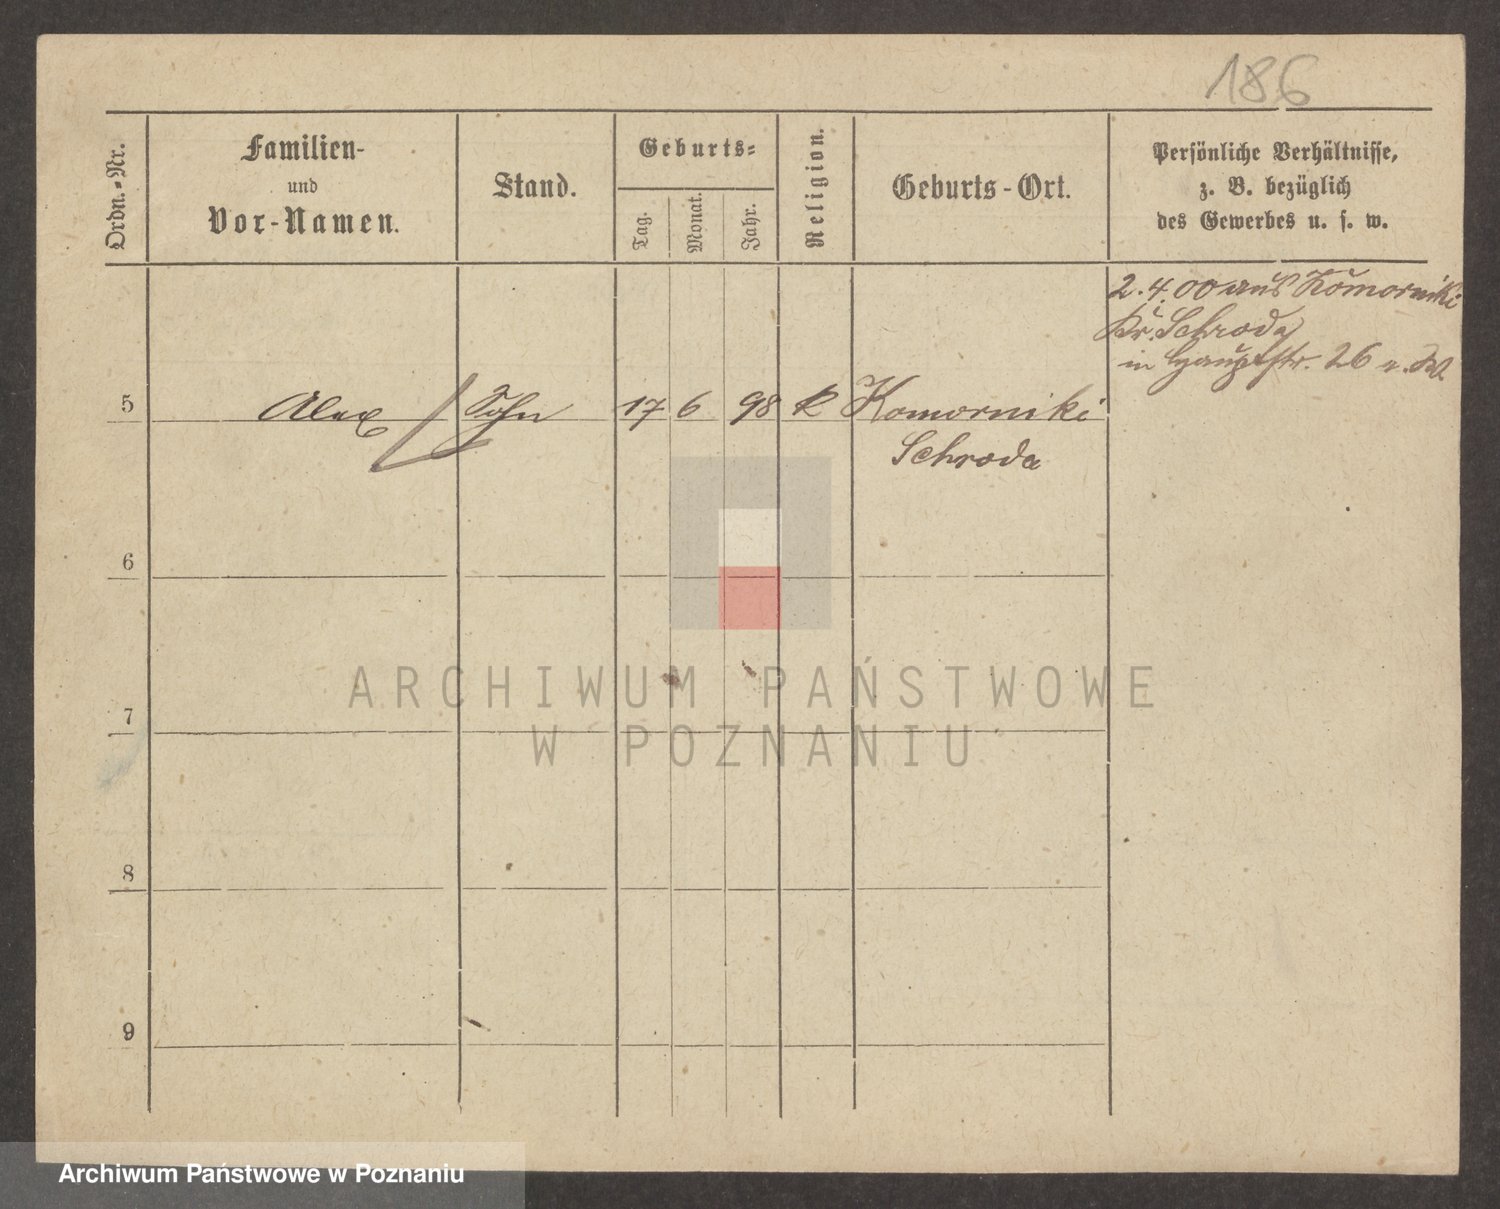 186
Ordn.-Nr.
Familien-
und
Vor-Namen.
Stand.
Geburts-
Tag.
Monat.
Jahr.
Religion.
Geburts-Ort.
Persönliche Verhältnisse,
z. B. bezüglich
des Gewerbes u. s. w.
2.4.00 aus Komorniki
Kr. Schroda
in Hauptstr. 26
5 Alex Sohn 17 6 98 k Komorniki
Schroda
6
7
8
9
ARCHIWUM PAŃSTWOWE
W POZNANIU
Archiwum Państwowe w Poznaniu